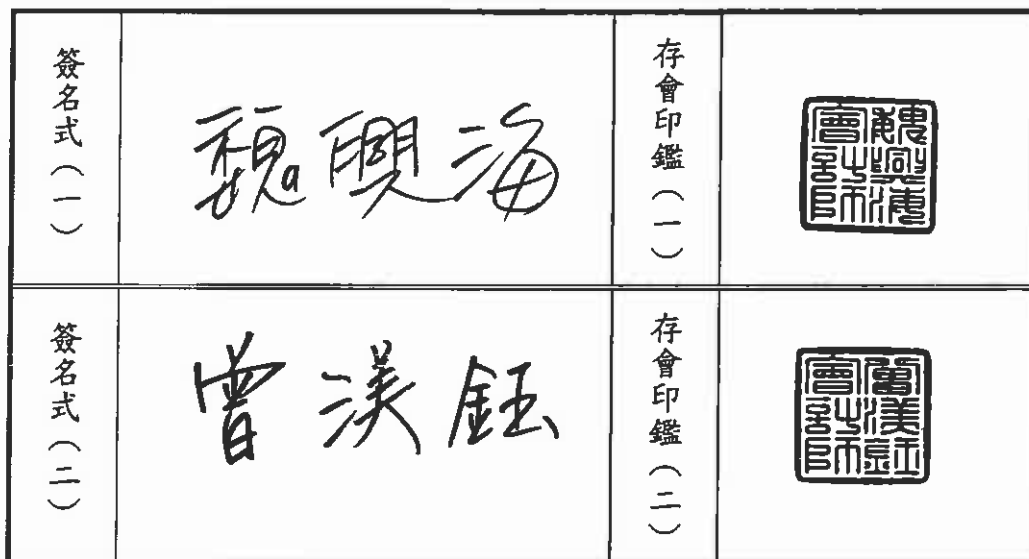 簽名式(一)
魏興海
存會印鑑(一)
魏興海會計師
簽名式(二)
曾渼鈺
存會印鑑(二)
曾渼鈺會計師